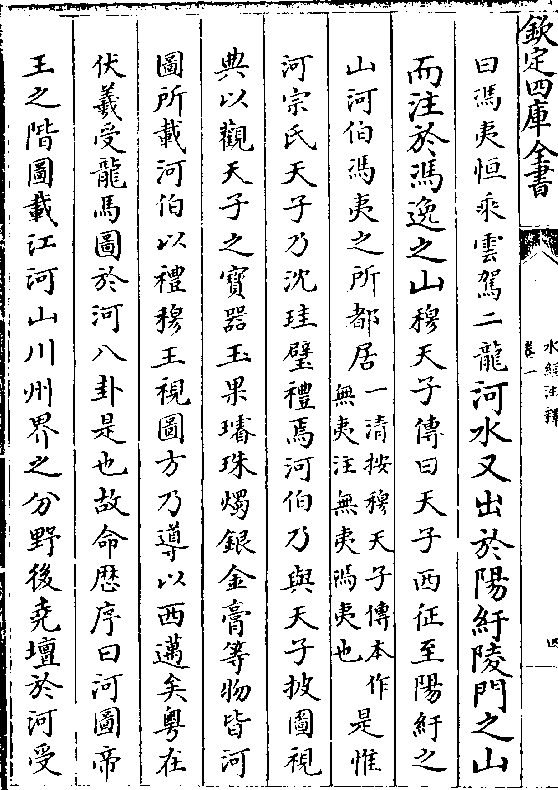 欽定四庫全書
水經注釋
卷一
四
曰馮夷恒乘雲駕二龍河水又出於陽紆陵門之山
而注於馮逸之山穆天子傳曰天子西征至陽紆之
山河伯馮夷之所都居一清按穆天子傳本作無夷注無夷馮夷也是惟
河宗氏天子乃沈珪璧禮焉河伯乃與天子披圖視
典以觀天子之寳器玉果璿珠燭銀金膏等物皆河
圖所載河伯以禮穆王視圖方乃導以西邁矣粤在
伏羲受龍馬圖於河八卦是也故命歴序曰河圖帝
王之階圖載江河山川州界之分野後堯壇於河受